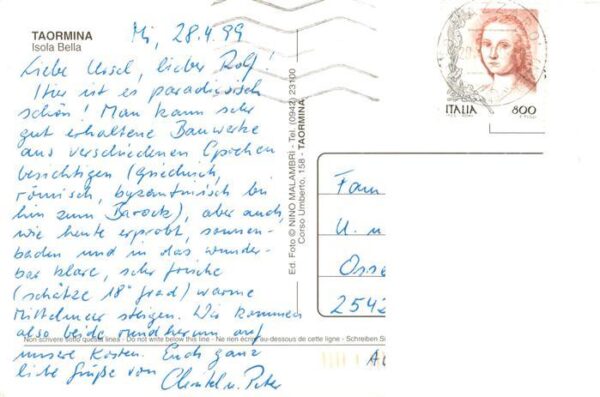 TAORMINA
Isola Bella
Mi, 28.4.99
Liebe Ursel, lieber Rolf!
Hier ist es paradiesisch
schön! Man kann sehr
gut erhaltene Bauwerke
aus verschiedenen Epochen
besichtigen (griechisch,
römisch, byzantinisch bis
hin zum Barock), aber auch,
wie heute erprobt, sonnen-
baden und in das wunder-
bar klare, sehr frische
(schätze 18° grad) warme
Mittelmeer steigen. Wir kommen
also beide rundherum auf
unsere Kosten. Euch ganz
liebe Grüße von
Christel u. Peter
Non scrivere sotto questa linea - Do not write below this line - Ne rien écrire au-dessous de cette ligne - Schreiben Si
Ed. Foto © NINO MALAMBRI - Tel. (0942) 23100
Corso Umberto, 158 - TAORMINA
ITALIA
800
Fam
U. u
Osse
2542